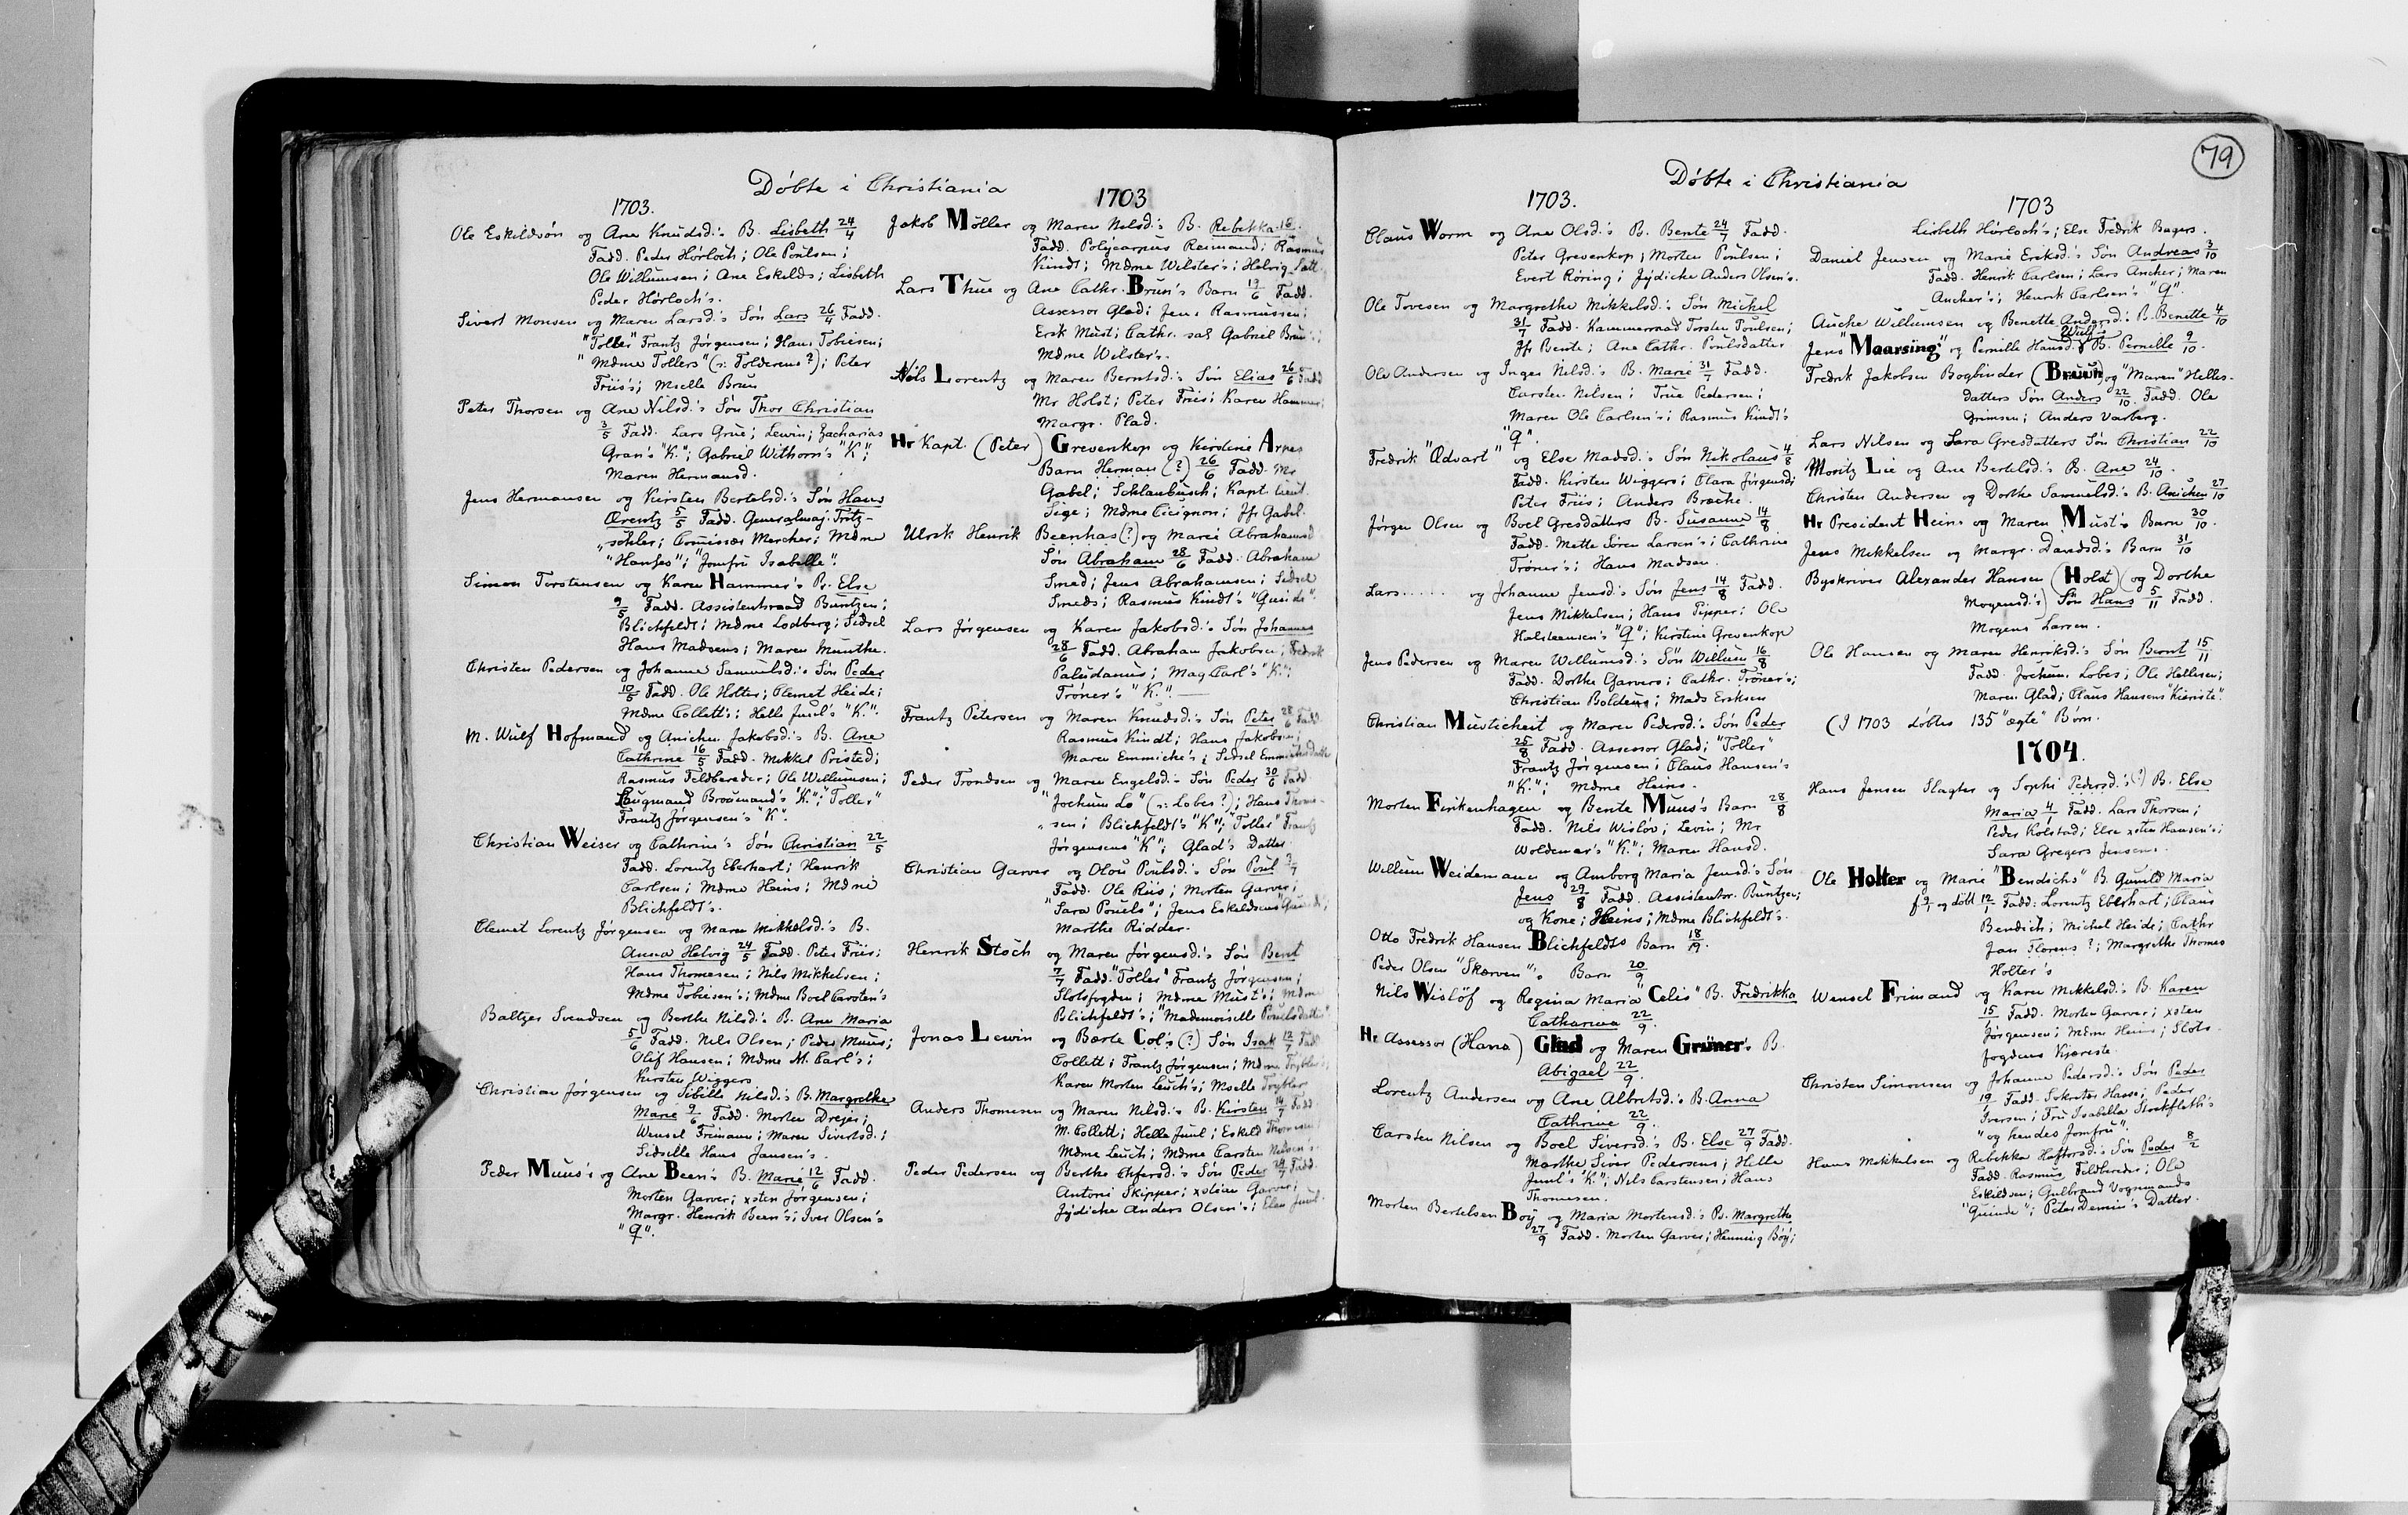 Döbte i Christiania
1703.
Ole Eskildsön og Ane Knudsd.'s B. Lisbeth 24/4
Fadd. Peder Hörloch; Ole Poulsen;
Ole Willumsen; Ane Eskilds; Lisbeth
Peder Hörloch's.
Sivert Monsen og Maren Larsd.'s Sön Lars 26/4 Fadd.
"Toller" Frantz Jörgensen; Hans Tobiesen;
"Mdme Tollers" (ɔ: Tolderens?); Peter
Friis's; Mselle Brun
Peter Thorsen og Ane Nilsd.'s Sön Thor Christian
3/5 Fadd. Lars Grue; Lewin; Zacharias
Gran's "K."; Gabriel Withorn's "K";
Maren Hermansd.
Jens Hermansen og Kirsten Bertelsd.'s Sön Hans
Ørentz 5/5 Fadd. Generalmaj. Tritz-
"schler; Comissær Mercher; Mdme
"Hanses"; "Jomfru Isabelle".
Simon Torstensen og Karen Hammer's B. Else
9/5 Fadd. Assistentsraad Buntzen;
Blichfeldt; Mdme Lodberg; Sidsel
Hans Madsens; Maren Munthe.
Christen Pedersen og Johanne Samuelsd.'s Sön Peder
10/5 Fadd. Ole Holter; Clemet Heide;
Mdme Collett's; Helle Juul's "K."
M. Wulf Hofmand og Anichen Jakobsd.'s B. Ane
Cathrine 16/5 Fadd. Mikkel Pristed;
Rasmus Feldbereder; Ole Willumsen;
Laugmand Broumand's "K."; "Toller"
Frantz Jörgensen's "K".
Christian Weiser og Cathrine's Sön Christian 22/5
Fadd. Lorentz Eberhart; Henrik
Carlsen; Mdme Heins; Mdme
Blichfeldt's.
Clemet Lorentz Jörgensen og Maren Mikkelsd.'s B.
Anna Helvig 24/5 Fadd. Peter Friis;
Hans Thomesen; Nils Mikkelsen;
Mdme Tobiesen's; Mdme Boel Carsten's
Baltzer Svendsen og Berthe Nilsd.'s B. Ane Maria
5/6 Fadd. Nils Olsen; Peder Muus;
Olif Hansen; Mdme M. Carl's;
Kirsten Wiggers
Christian Jörgensen og Sibille Nilsd.'s B. Margrethe
Marie 9/6 Fadd. Morten Drejer;
Wensel Frimann; Maren Sivertsd.;
Sidselle Hans Jansen's.
Peder Muus's og Ane Been's B. Marie 12/6 Fadd.
Morten Garver; xsten Jörgensen;
Margr. Henrik Been's; Iver Olsen's
"Q".
1703
Jakob Möller og Maren Nilsd.'s B. Rebekka 18
Fadd. Polycarpus Reimand; Rasmus
Kindt; Mdme Wilster's; Helvig
Lars Thue og Ane Cathr. Brun's Barn 19/6 Fadd.
Assessor Glad; Jens Rasmussen;
Ersk Must; Cathr. sal Gabriel Brun's;
Mdme Wilster's.
Nils Lorentz og Maren Berntsd.'s Sön Elias 26/6 Fadd
Mr Holst; Peter Friis; Karen Hammer;
Margr. Plad.
Hr Kapt. (Peter) Grevenkop og Kirstine Arnes
Barn Herman (?) 26/6 Fadd. Mr
Gabel; Schlanbusch; Kapt. lieut.
Sige; Mdme Cicignon; Jfr Gabel.
Ulrik Henrik Beenhas (?) og Marie Abrahamsd
Sön Abraham 28/6 Fadd. Abraham
Smed; Jens Abrahamsen; Sidsel
Smeds; Rasmus Kindt's "Quinde".
Lars Jörgensen og Karen Jakobsd.'s Sön Johannes
28/6 Fadd. Abraham Jakobsen; Fredrik
Paludanus; Mag Carl's "K.";
Tröner's "K."
Frantz Petersen og Maren Knudsd.'s Sön Peter 28/6 Fadd.
Rasmus Kindt; Hans Jakobsen;
Maren Emmiche's; Sidsel Emmichsdatter
Peder Trondsen og Maren Engelsd.'s Sön Peder 30/6 Fadd
"Jochum Lo" (ɔ: Lobes?); Hans Thom-
"sen; Blichfeldt's "K"; "Toller" Frantz
Jörgensens "K"; Glad's Datter
Christian Garver og Olou Poulsd.'s Sön Poul 3/7
Fadd. Ole Riis; Morten Garver;
"Sara Pouels"; Jens Eskildsens "Quinde;
Marthe Ridder.
Henrik Stoch og Maren Jörgensd.'s Sön Bent
7/7 Fadd. "Toller" Frantz Jörgensen;
Slotsfogden; Mdme Must's; Mdme
Blichfeldt's; "Mademoiselle Poulsdatter"
Jonas Lewin og Bærte Col's (?) Sön Isak 12/7 Fadd
Collett; Frantz Jörgensen; Mdme
Karen Morten Leuch's; Mselle
Anders Thomesen og Maren Nilsd.'s B. Kirsten 14/7 Fadd.
M. Collett; Helle Juul; Eskild Thomesen;
Mdme Leuch; Mdme Carsten Nilsen's.
Peder Pedersen og Berthe Christd.'s Sön Peder 24/7 Fadd.
Antoni Skipper; xstian Garver;
Jydicke Anders Olsen's; Elen Juul.
79
Döbte i Christiania
1703.
Claus Worm og Ane Olsd.'s B. Bente 24/7 Fadd.
Peter Grevenkop; Morten Poulsen;
Evert Röring; Jydicke Anders Olsen's.
Ole Tovesen og Margrethe Mikkelsd.'s Sön Michel
31/7 Fadd. Kammerraad Torsten Poulsen;
Jfr Bente; Ane Cathr. Poulsdatter
Ole Andersen og Inger Nilsd.'s B. Marie 31/7 Fadd.
Carsten Nilsen; True Pedersen;
Maren Ole Carlsen's; Rasmus Kindt's
"Q".
Fredrik "Ødvart" og Else Madsd.'s Sön Nikolaus 4/8
Fadd. Kirsten Wiggers; Clara Jörgensd;
Peter Friis; Anders Bræche.
Jörgen Olsen og Boel Gresdatters B. Susanne 14/8
Fadd. Mette Sören Larsen's; Cathrine
Tröner's; Hans Madsen.
Lars ..... og Johanne Jensd.'s Sön Jens 14/8 Fadd.
Jens Mikkelsen; Hans Pipper; Ole
Halsteensen's "Q"; Kirstine Grevenkop
Jens Pedersen og Maren Willumsd.'s Sön Willum 16/8
Fadd. Dorthe Garvers; Cathr. Tröner's;
Christian Boldeus; Mads Ersken
Christian Musticheit og Maren Pedersd.'s Sön Peder
25/8 Fadd. Assessor Glad; "Toller"
Frantz Jörgensen; Claus Hansen's
"K."; Mdme Heins.
Morten Finkenhagen og Bente Muus's Barn 28/8
Fadd. Nils Wislöv; Levin; Mr
Woldemar's "K."; Maren Hansd.
Willum Weidemann og Amborg Maria Jensd.'s Sön
Jens 29/8 Fadd. Assistentsr. Buntzen;
og Kone; Heins; Mdme Blichfeldt's.
Otto Fredrik Hansen Blichfeldts Barn 18/9.
Peder Olsen "Skærven"'s Barn 20/9
Nils Wislöf og Regina Maria "Celis" B. Fredrikka
Catharina 22/9.
Hr Assessor (Hans) Glad og Maren Grüner's B.
Abigael 22/9.
Lorentz Andersen og Ane Albretsd.'s B. Anna
Cathrine 22/9.
Carsten Nilsen og Boel Siversd.'s B. Else 27/9 Fadd.
Marthe Siver Pedersens; Helle
Juul's "K."; Nils Carstensen; Hans
Thomesen.
Morten Bertelsen Boy og Maria Mortensd.'s B. Margrethe
27/9 Fadd. Morten Garver; Henning Böy;
1703
Lisbeth Hörloch's; Else Fredrik Bagers.
Daniel Jensen og Marie Eriksd.'s Sön Andreas 3/10
Fadd. Henrik Carlsen; Lars Ancher; Maren
Ancher's; Henrik Carlsen's "Q".
Auche Willumsen og Benette Andersd.'s B. Benette 4/10
Wulf's
Jens "Maarsing" og Pernille Hansd. B. Pernille 9/10.
Fredrik Jakobsen Bogbinder (Bruun) og "Maren" Helles-
datters Sön Anders 22/10. Fadd. Ole
Grimsen; Anders Varberg.
Lars Nilsen og Sara Gresdatters Sön Christian 22/10
Moritz Lie og Ane Bertelsd.'s B. Ane 24/10.
Christen Andersen og Dorthe Sammelsd.'s B. Anichen 27/10
Hr President Heins og Maren Must's Barn 30/10.
Jens Mikkelsen og Margr. Davidsd.'s Barn 31/10
Byskriver Alexander Hansen (Holst) (og Dorthe
Mogensd.'s) Sön Hans 5/11 Fadd.
Mogens Larsen.
Ole Hansen og Maren Henriksd.'s Sön Bernt 15/11
Fadd. Jochum Lobes; Ole Hellesen;
Maren Glad; Claus Hansens "Kieriste".
(I 1703 döbtes 135 "ægte" Börn.
1704.
Hans Jensen Slagter og Sophi Pedersd.'s (?) B. Else
Maria 4/1 Fadd. Lars Thorsen;
Peder Kolstad; Else xsten Hansen's;
Sara Gregers Jensens.
Ole Holter og Marie "Bendichs" B. Gunild Maria
f 9/1 og döbt 12/1 Fadd. Lorentz Eberhart; Claus
Bendich; Michel Heide; Cathr
Jan Florens?; Margrethe Thomes
Holter's
Wensel Frimand og Karen Mikkelsd.'s B. Karen
15/1 Fadd. Morten Garver; xsten
Jörgensen; Mdme Heins; Slots-
fogdens Kjæreste.
Christen Simonsen og Johanne Pedersd.'s Sön Peder
19/1 Fadd. Sekretær Hasse; Peder
Iversen; Fru Isabella Stockfleth's
"og hendes Jomfru".
Hans Mikkelsen og Rebekka Haftorsd.'s Sön Peder 8/2
Fadd. Rasmus Feldbereder; Ole
Eskildsen; Gulbrand Vognmands
"Quinde"; Peter Demin's Datter.